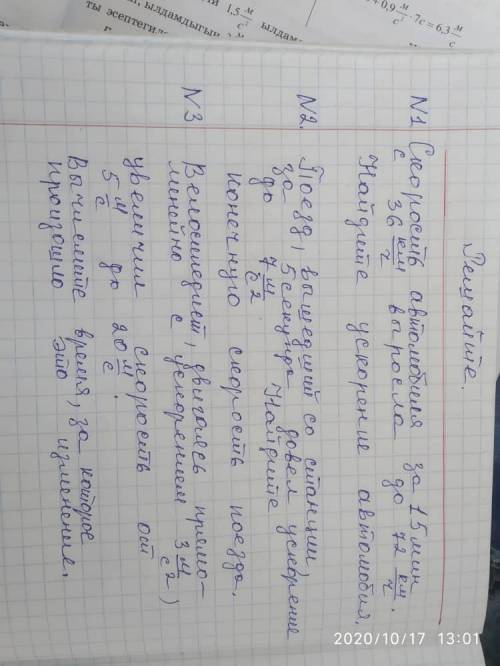 1,5 м/с²
ылдамдыгын
ты эсептегиле
0,9 м/с² · 7с = 6,3 м/с
Решайте.
N1 Скорость автомобиля за 15 мин
с 36 км/ч выросла до 72 км/ч.
Найдите ускорение автомобиля.
N2. Поезд, вышедший со станции,
за 5 секунд довел ускорение
до 7 м/с2 Найдите
конечную скорость поезда.
N3 Велосипедист, двигаясь прямо-
линейно с ускорением 3 м/с2,
увеличил скорость от
5 м/с до 20 м/с.
Вычислите время, за которое
произошло это изменение.
2020/10/17 13:01